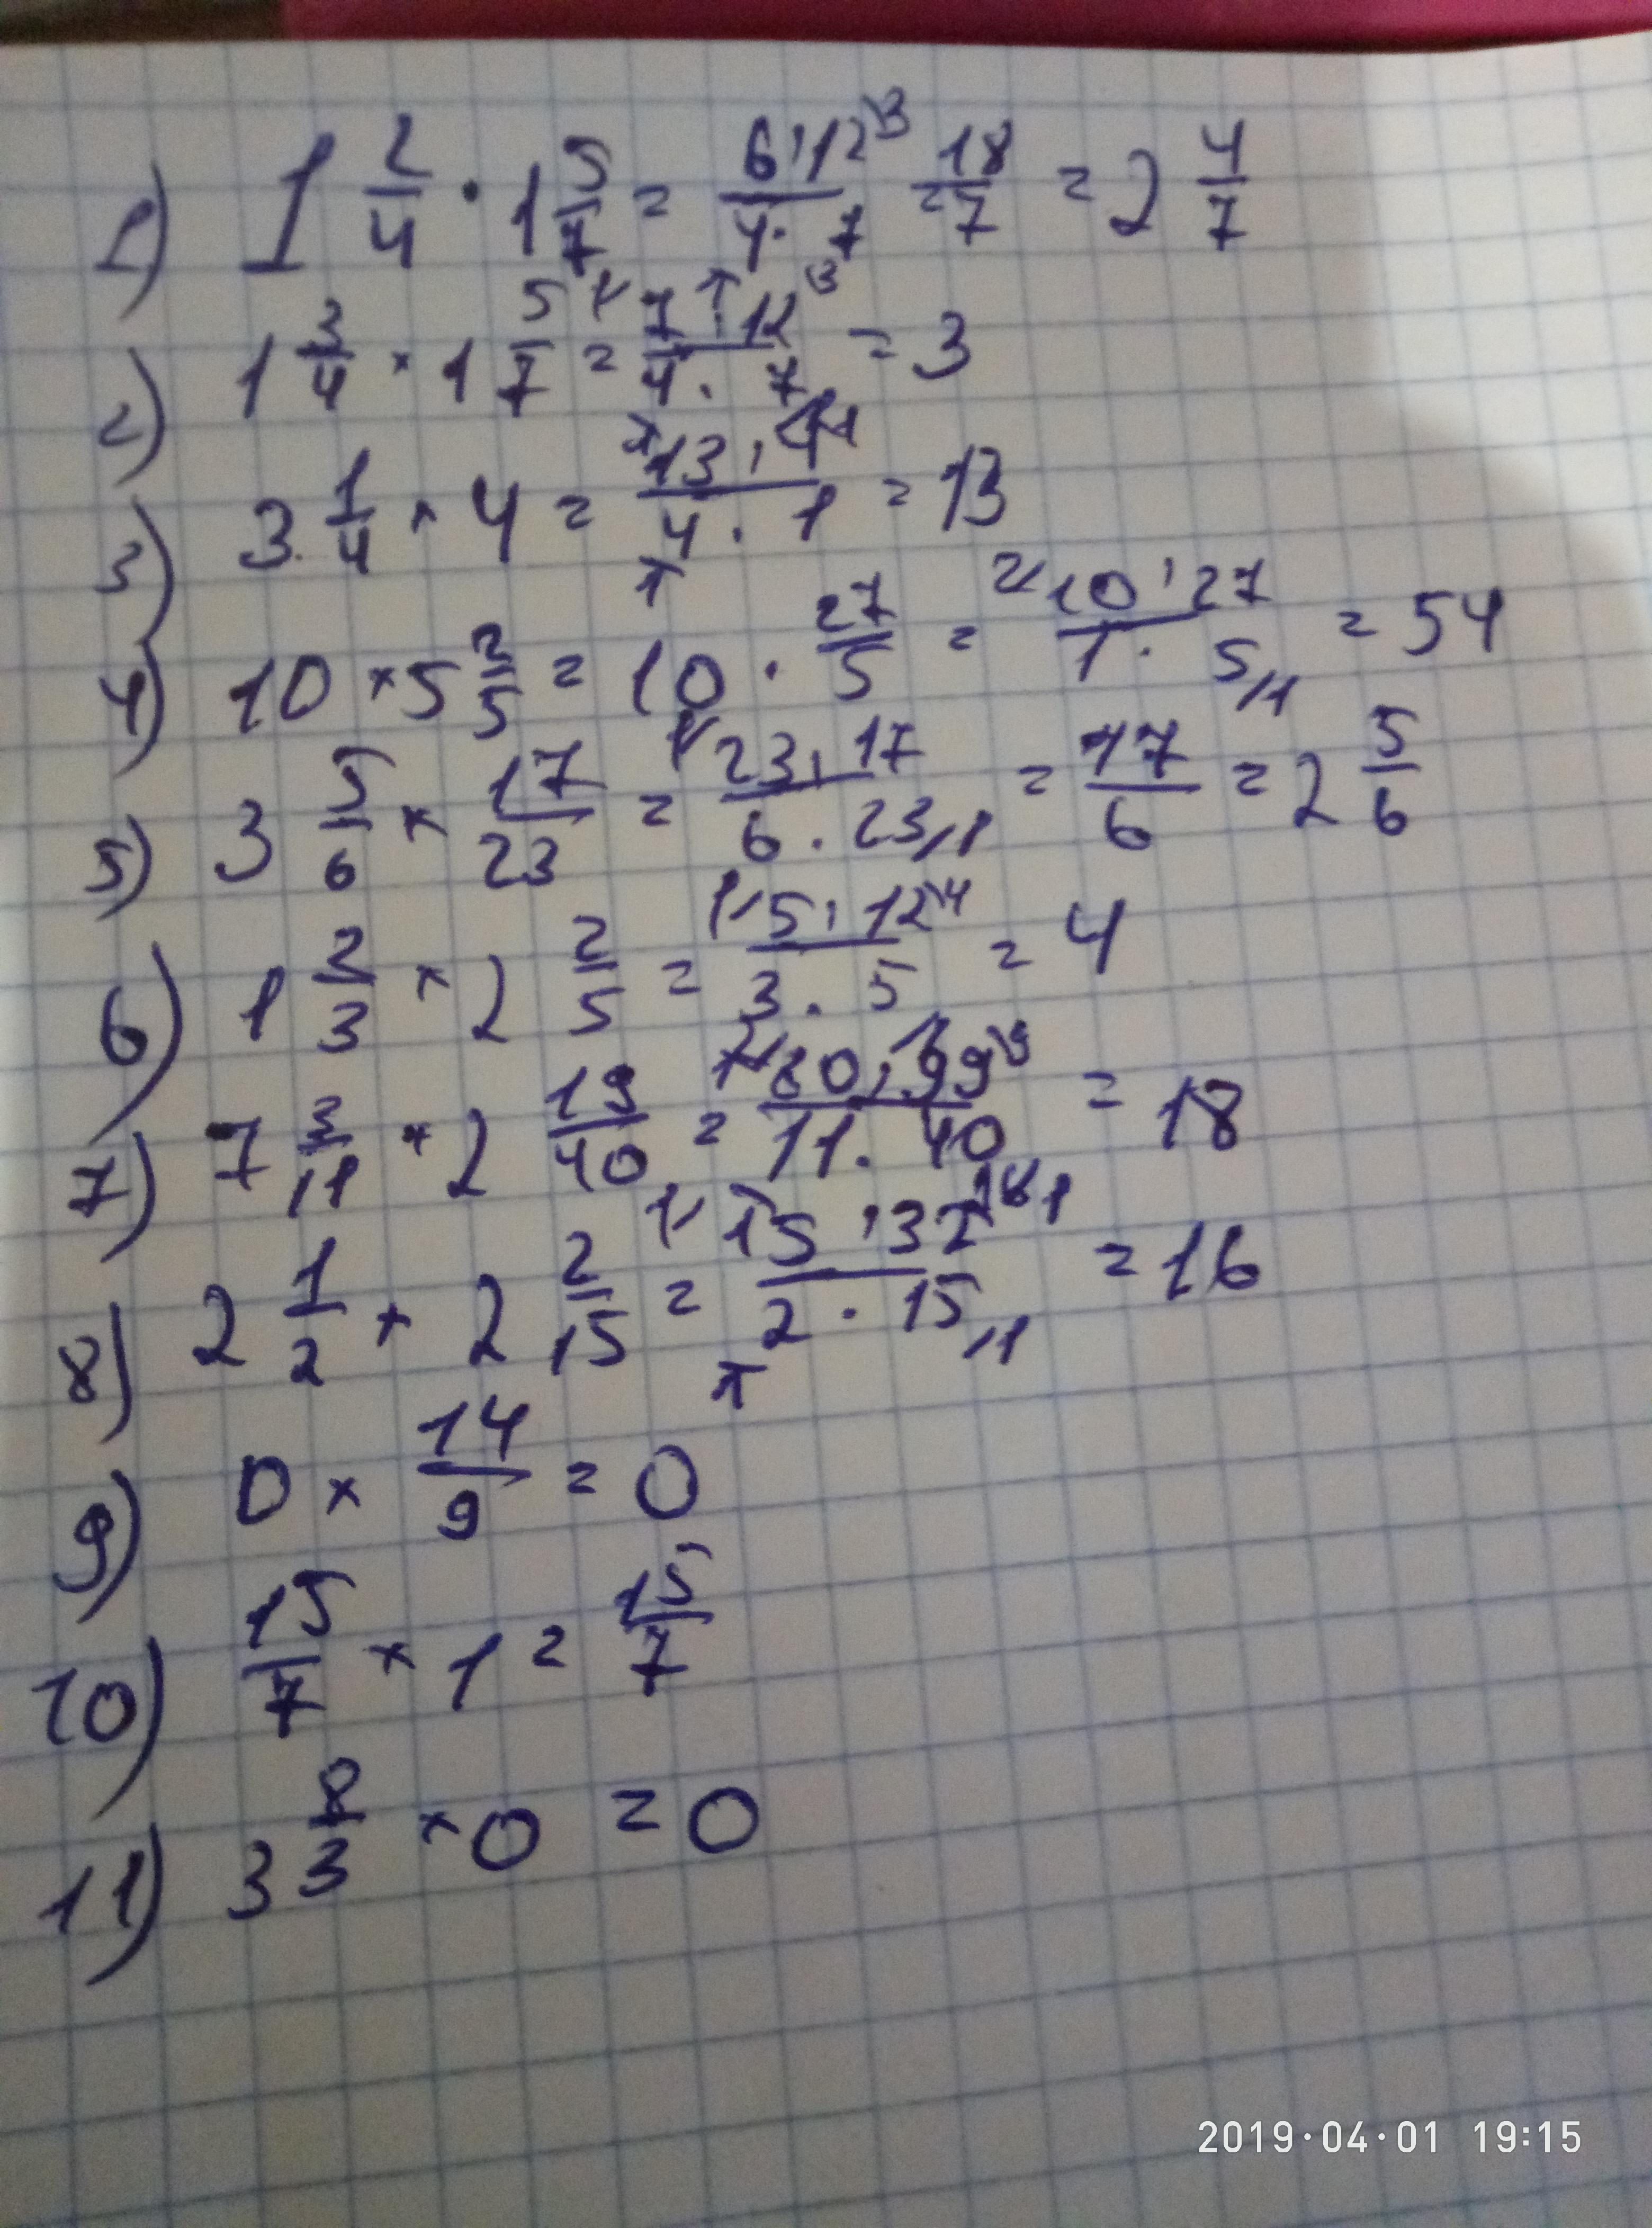 1) 1 2/4 · 1 5/7 = 6·12 3/4·7 = 18/7 = 2 4/7
2) 1 3/4 × 1 5/7 = 1 7·12 3/4·7 = 3
3) 3 1/4 × 4 = 13·4 1/4·1 = 13
4) 10 × 5 2/5 = 10 · 27/5 = 2 10·27/1·5 1 = 54
5) 3 5/6 × 17/23 = 1 23·17/6·23 1 = 17/6 = 2 5/6
6) 1 2/3 × 2 2/5 = 1 5·12 4/3·5 = 4
7) 7 3/11 × 2 19/40 = 2 80·99 9/11·40 = 18
8) 2 1/2 × 2 2/15 = 1 15·32 16/2·15 1 = 16
9) 0 × 14/9 = 0
10) 15/7 × 1 = 15/7
11) 3 8/3 × 0 = 0
2019·04·01 19:15